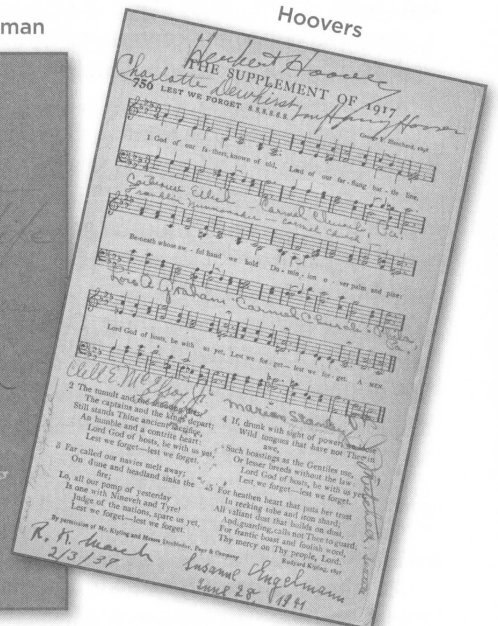 man
Hoovers
Herbert Hoover
THE SUPPLEMENT OF 1917
Charlotte Dewhirst Lou Henry Hoover
756 LEST WE FORGET
George F. Blanchard,
1 God of our fa-thers, known of old, Lord of our far-flung bat-tle line,
Ethel Carmel Church,
Franklin Carmel Church
Be-neath whose aw-ful hand we hold Do-min-ion o-ver palm and pine:
Graham Carmel Church
Lord God of hosts, be with us yet, Lest we for-get— lest we for-get. A-MEN.
Marion
2 The tumult and the
The captains and the kings depart;
Still stands Thine ancient sacrifice,
An humble and a contrite heart:
Lord God of hosts, be with us yet,
Lest we forget—lest we forget.
3 Far called our navies melt away;
On dune and headland sinks the
fire;
Lo, all our pomp of yesterday
Is one with Nineveh and Tyre!
Judge of the nations, spare us yet,
Lest we forget—lest we forget.
4 If, drunk with sight of power,
Wild tongues that have not Thee in
awe,
Such boastings as the Gentiles use,
Or lesser breeds without the law,
Lord God of hosts, be with us yet,
Lest we forget—lest we forget.
5 For heathen heart that puts her trust
In reeking tube and iron shard;
All valiant dust that builds on dust,
And, guarding, calls not Thee to guard,
For frantic boast and foolish word,
Thy mercy on Thy people, Lord.
Rudyard Kipling,
By permission of Mr. Kipling and Messrs Doubleday, Page & Company
R. K.
2/3/38
Susanne Engelmann
June 28, 1941